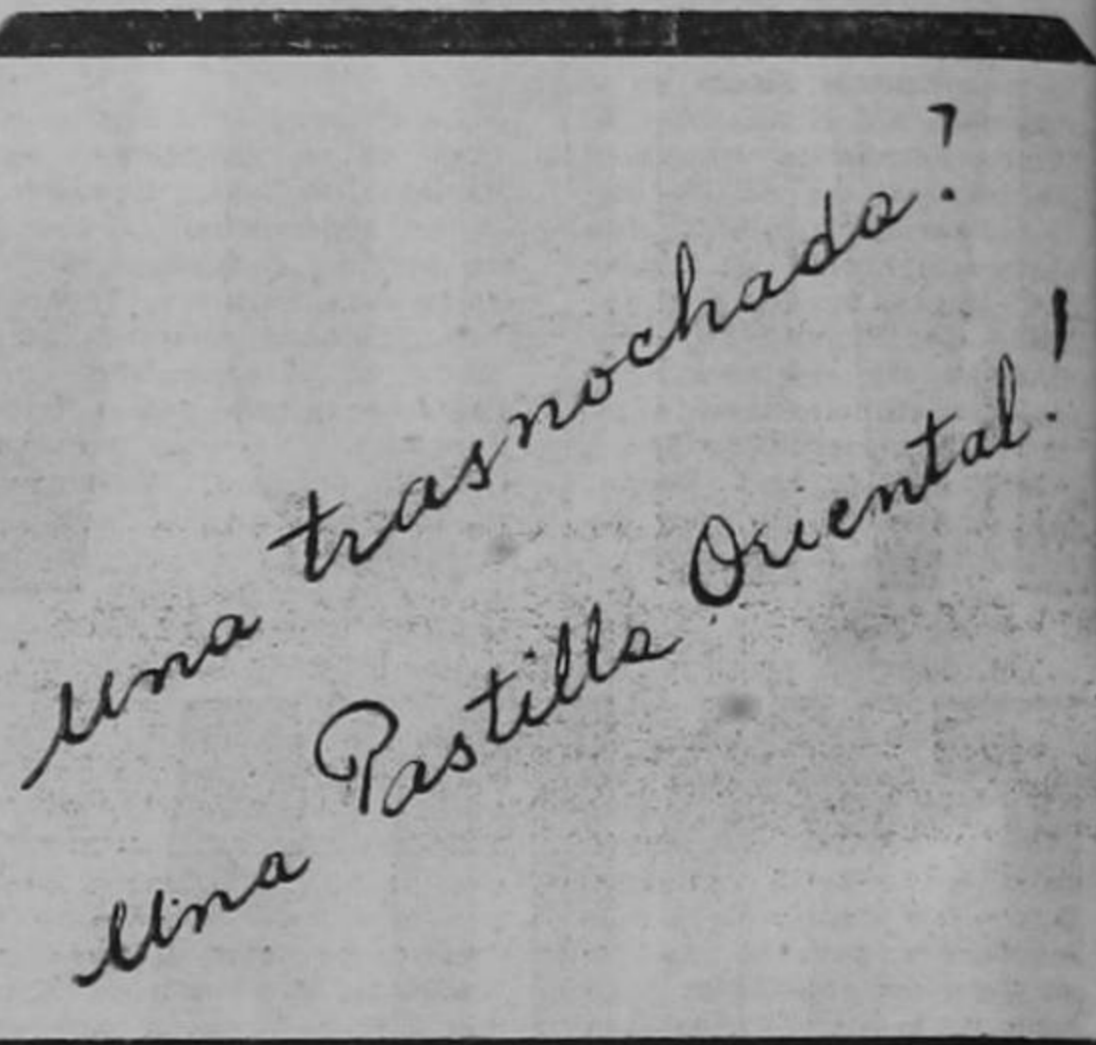 Una trasnochada?
Una Pastilla Oriental!